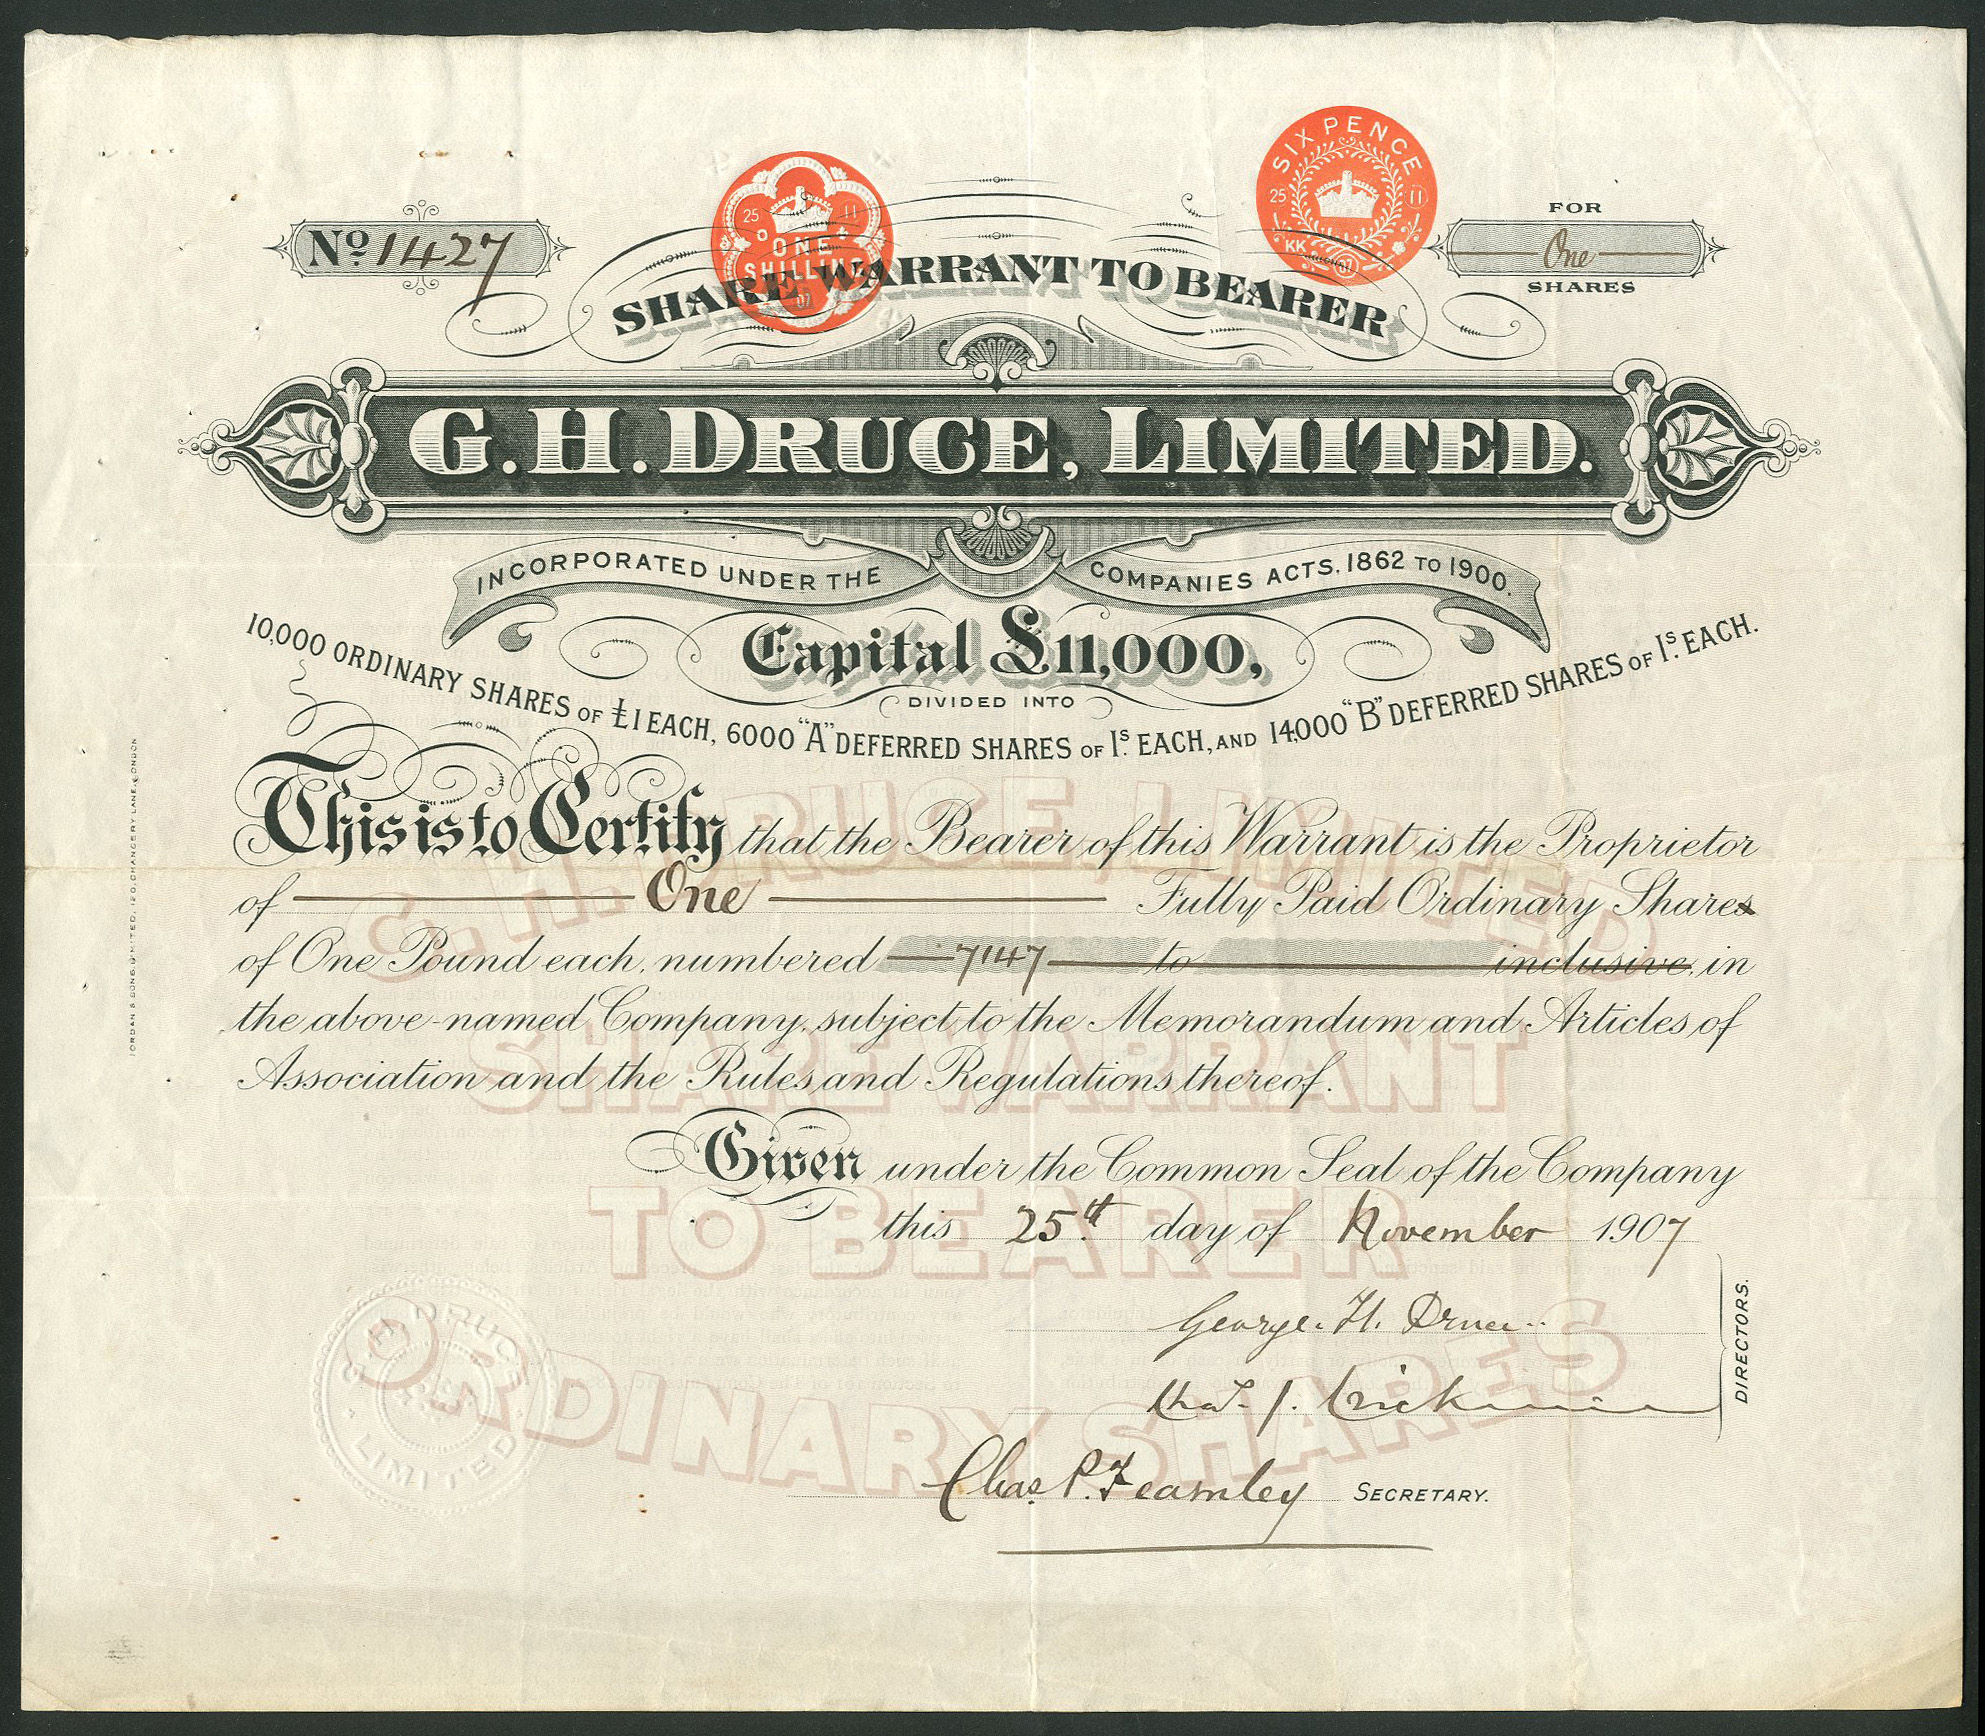 No 1427
25 11
ONE
SHILLING
07
SIX PENCE
25 11
KK
07
FOR
One
SHARES
SHARE WARRANT TO BEARER
G. H. DRUCE, LIMITED.
INCORPORATED UNDER THE COMPANIES ACTS. 1862 TO 1900.
Capital £11,000,
DIVIDED INTO
10,000 ORDINARY SHARES OF £1 EACH, 6000 "A" DEFERRED SHARES OF 1s. EACH, AND 14,000 "B" DEFERRED SHARES OF 1s. EACH.
This is to Certify that the Bearer of this Warrant is the Proprietor
of One Fully Paid Ordinary Shares
of One Pound each, numbered 7147 to inclusive, in
the above-named Company, subject to the Memorandum and Articles of
Association and the Rules and Regulations thereof.
Given under the Common Seal of the Company
this 25th day of November 1907
George. H. Druce
DIRECTORS.
Chas P. Fearnley SECRETARY.
G. H. DRUCE LIMITED
SHARE WARRANT
TO BEARER
ORDINARY SHARES
G. H. DRUCE
LIMITED
JORDAN & SONS, LIMITED, 120, CHANCERY LANE, LONDON